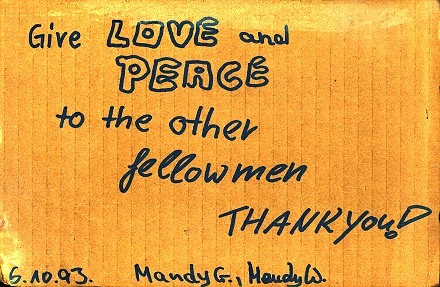 Give LOVE and
PEACE
to the other
fellowmen
THANK YOU!
6.10.93. Mandy G., Mandy W.